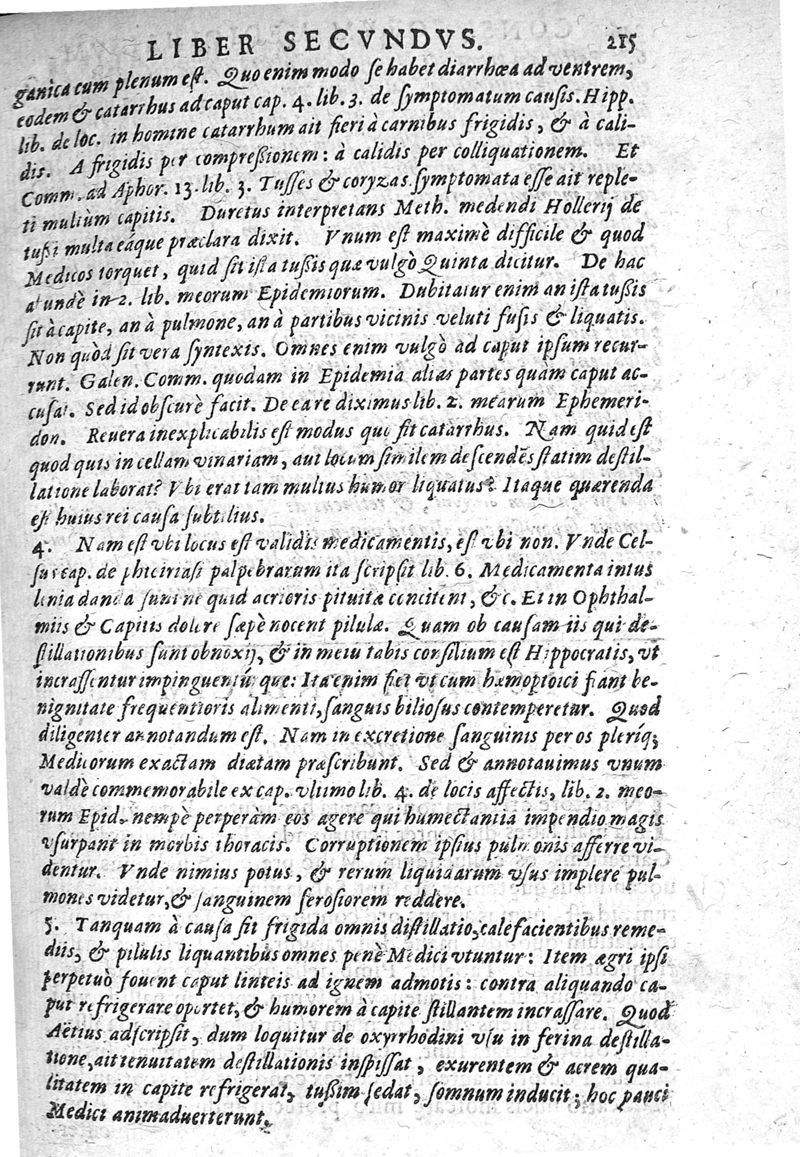 LIBER SECVNDVS. 215
ganica cum plenum est. Quo enim modo se habet diarrhœa ad ventrem,
eodem & catarrhus ad caput cap. 4. lib. 3. de symptomatum causis. Hipp.
lib. de loc. in homine catarrhum ait fieri à carnibus frigidis, & à cali-
dis. A frigidis per compreßionem: à calidis per colliquationem. Et
Comm. ad Aphor. 13. lib. 3. Tusses & coryzas symptomata esse ait reple-
ti multùm capitis. Duretus interpretans Meth. medendi Hollerij de
tußi multa eáque præclara dixit. Vnum est maximè difficile & quod
Medicos torquet, quid sit ista tußis quæ vulgò Quinta dicitur. De hac
abundè in 2. lib. meorum Epidemiorum. Dubitatur enim an ista tußis
sit à capite, an à pulmone, an à partibus vicinis veluti fusis & liquatis.
Non quòd sit vera syntexis. Omnes enim vulgò ad caput ipsum recur-
runt. Galen. Comm. quodam in Epidemia alias partes quam caput ac-
cusat. Sed id obscurè facit. De ea re diximus lib. 2. mearum Ephemeri-
don. Revera inexplicabilis est modus quo fit catarrhus. Nam quid est
quod quis in cellam vinariam, aut locum similem descendẽs statim destil-
latione laborat? Vbi erat tam multus humor liquatus? Itaque quærenda
est huius rei causa subtilius.
4. Nam est vbi locus est validis medicamentis, est vbi non. Vnde Cel-
sus cap. de phteiriasi palpebrarum ita scripsit lib. 6. Medicamenta intus
lenia danda sunt ne quid acrioris pituitæ concitent, &c. Et in Ophthal-
miis & Capitis dolore sæpè nocent pilulæ. Quam ob causam iis qui de-
stillationibus sunt obnoxij, & in metu tabis consilium est Hippocratis, vt
incrassentur impinguentúrque: Ita enim fiet vt cum hæmoptoici fiant be-
nignitate frequentioris alimenti, sanguis biliosus contemperetur. Quod
diligenter annotandum est. Nam in excretione sanguinis per os pleríq;
Medicorum exactam diætam præscribunt. Sed & annotauimus vnum
valdè commemorabile ex cap. vltimo lib. 4. de locis affectis, lib. 2. meo-
rum Epid. nempè perperàm eos agere qui humectantia impendio magis
vsurpant in morbis thoracis. Corruptionem ipsius pulmonis afferre vi-
dentur. Vnde nimius potus, & rerum liquidarum vsus implere pul-
mones videtur, & sanguinem serosiorem reddere.
5. Tanquam à causa sit frigida omnis distillatio, calefacientibus reme-
diis, & pilulis liquantibus omnes penè Medici vtuntur: Item ægri ipsi
perpetuò fouent caput linteis ad ignem admotis: contra aliquando ca-
put refrigerare oportet, & humorem à capite stillantem incrassare. Quod
Aëtius adscripsit, dum loquitur de oxyrrhodini vsu in ferina destilla-
tione, ait tenuitatem destillationis inspissat, exurentem & acrem qua-
litatem in capite refrigerat, tußim sedat, somnum inducit; hoc pauci
Medici animaduerterunt.